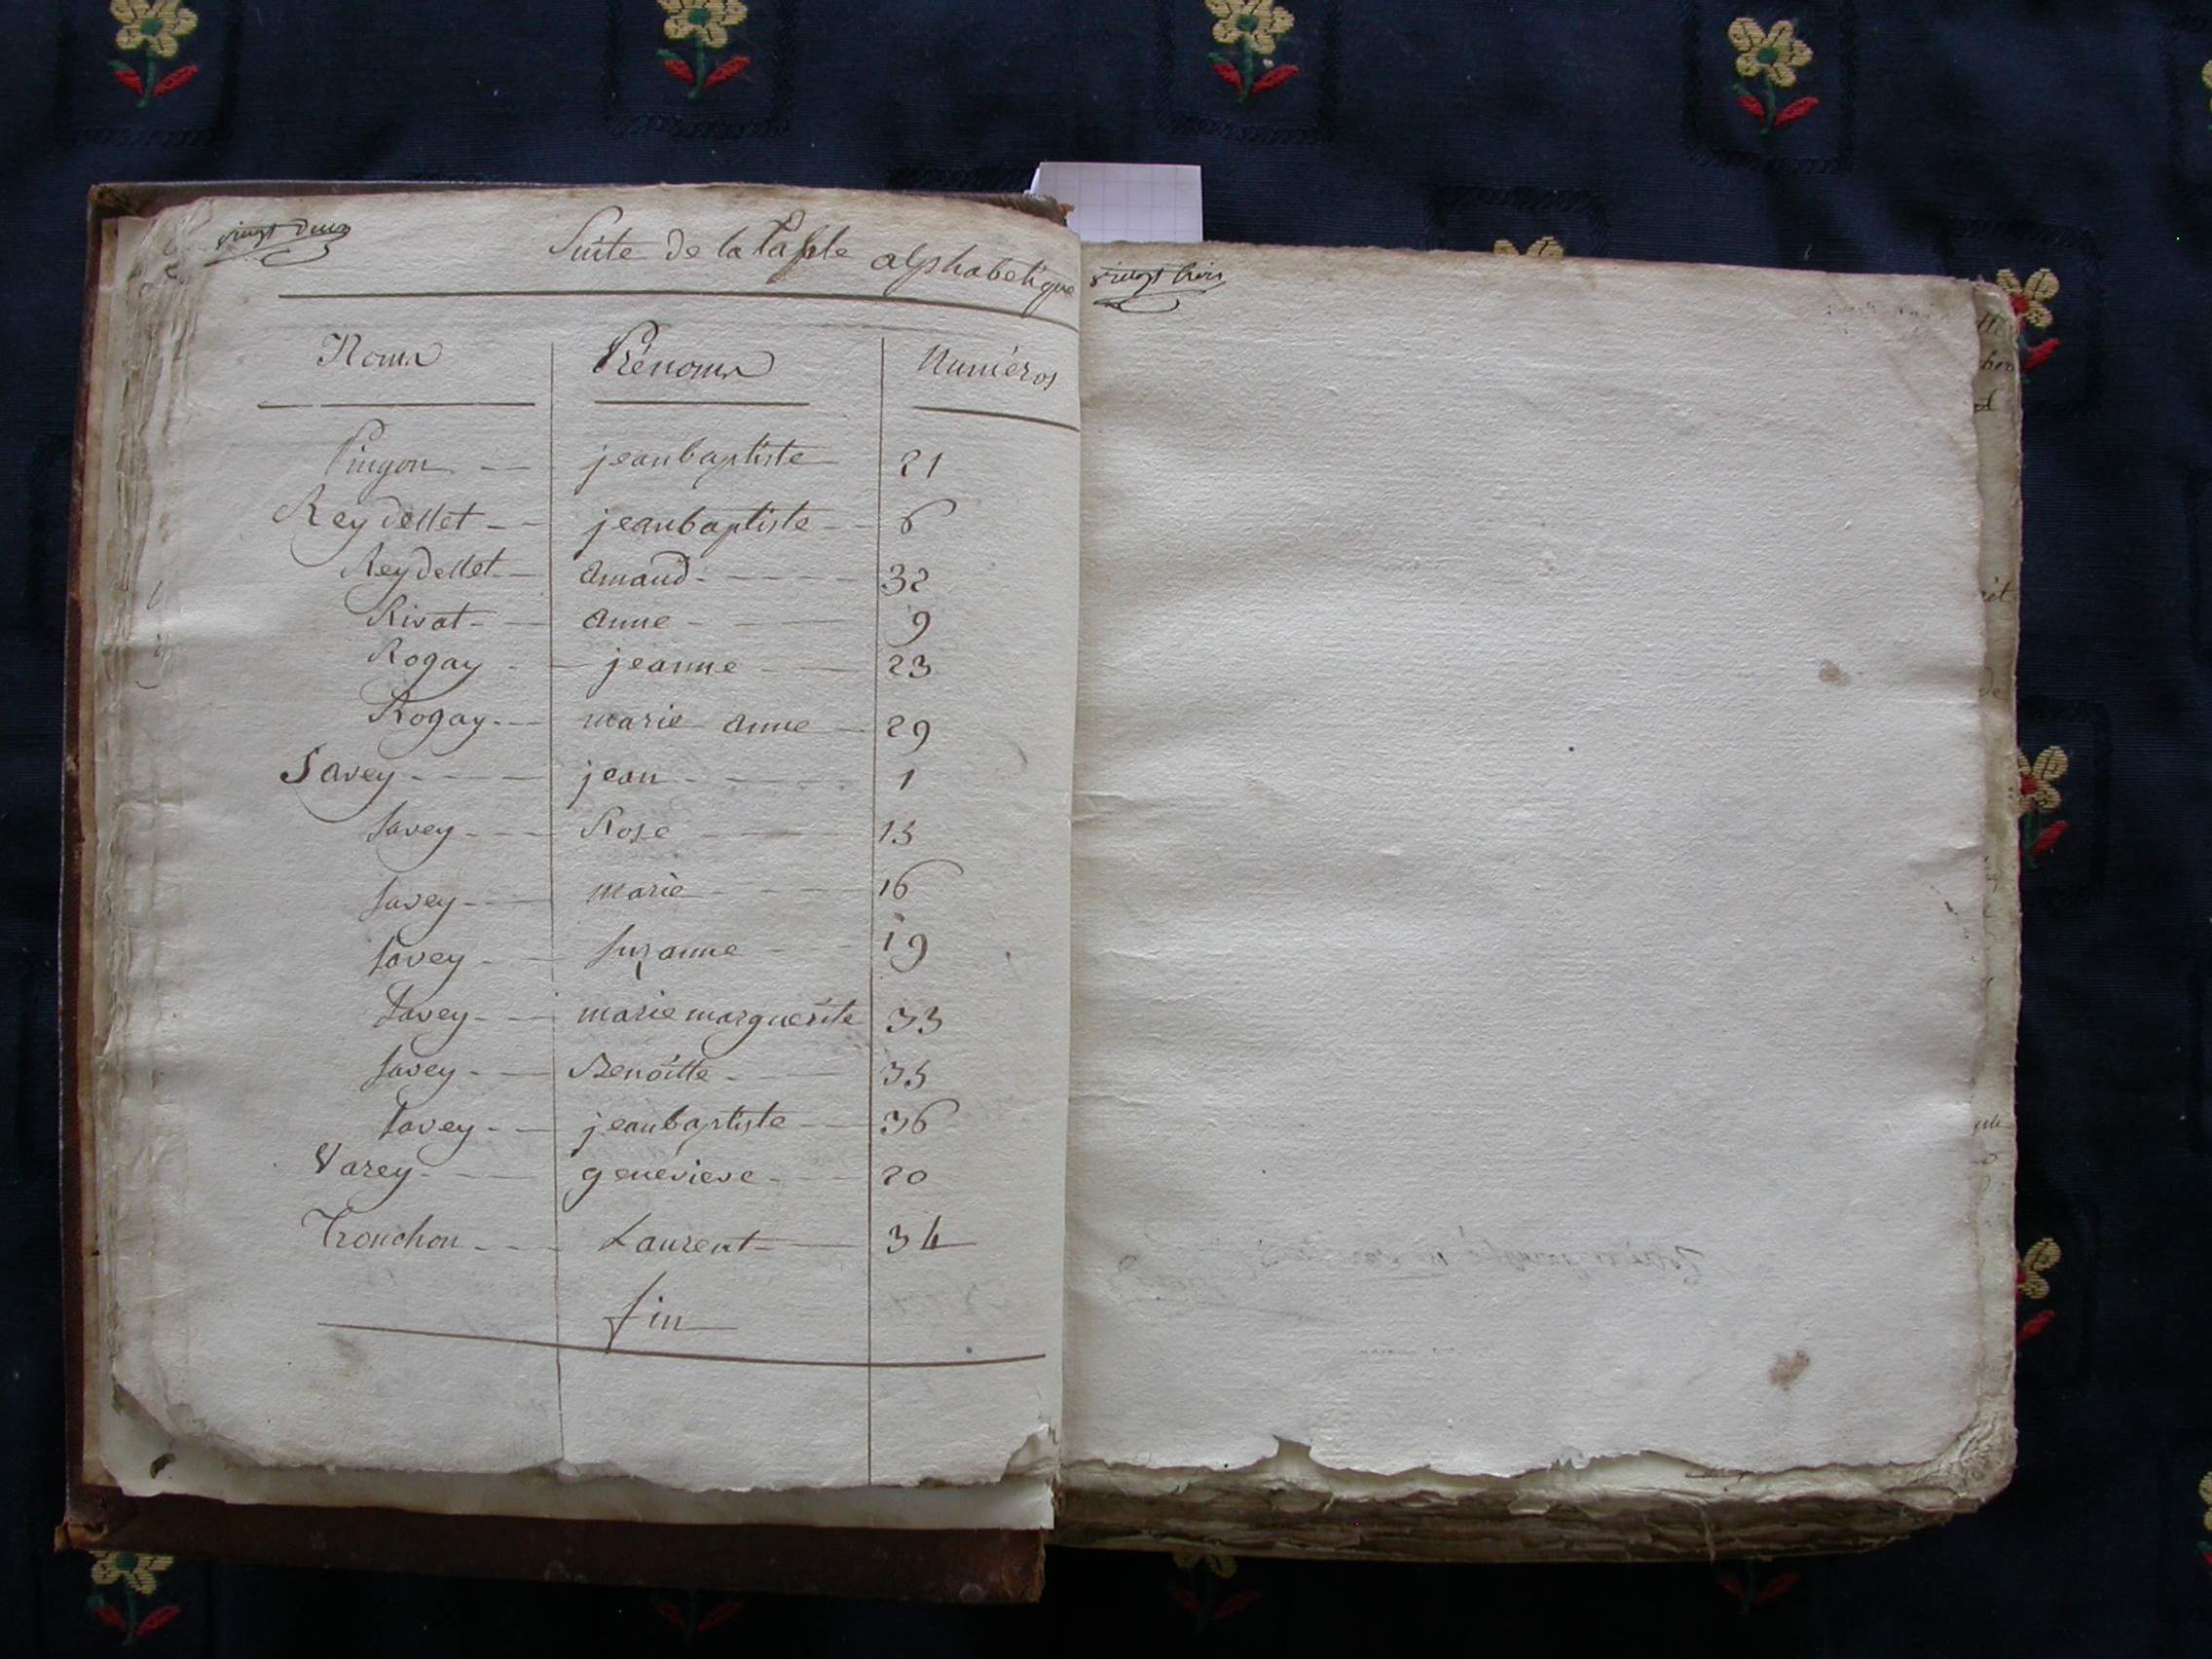 vingt deux
Suite de la Table alphabetique
Noms Prénoms Numéros
Pingon jean baptiste 21
Reydellet jean baptiste 6
Reydellet amand 32
Rivat anne 9
Rogay jeanne 23
Rogay marie anne 29
Savey jean 1
Savey Rose 15
Savey marie 16
Savey Suzanne 19
Savey marie marguerite 33
Savey Benoitte 35
Savey jean baptiste 36
Varey genevieve 20
Tronchon Laurent 34
fin
vingt trois